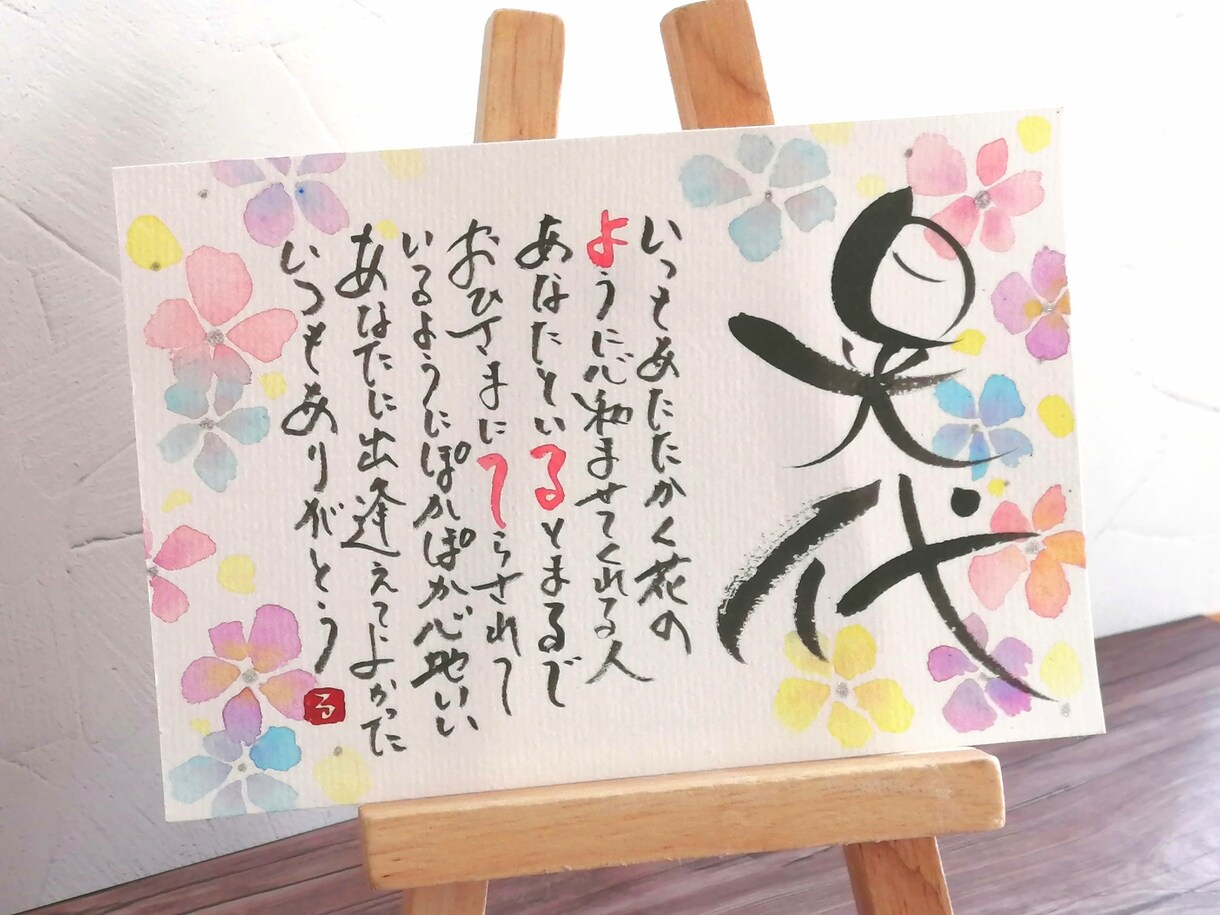 晃代
いつもあたたかく花の
ように心和ませてくれる人
あなたといるとまるで
おひさまにてらされて
いるようにぽかぽか心地いい
あなたに出逢えてよかった
いつもありがとう
る